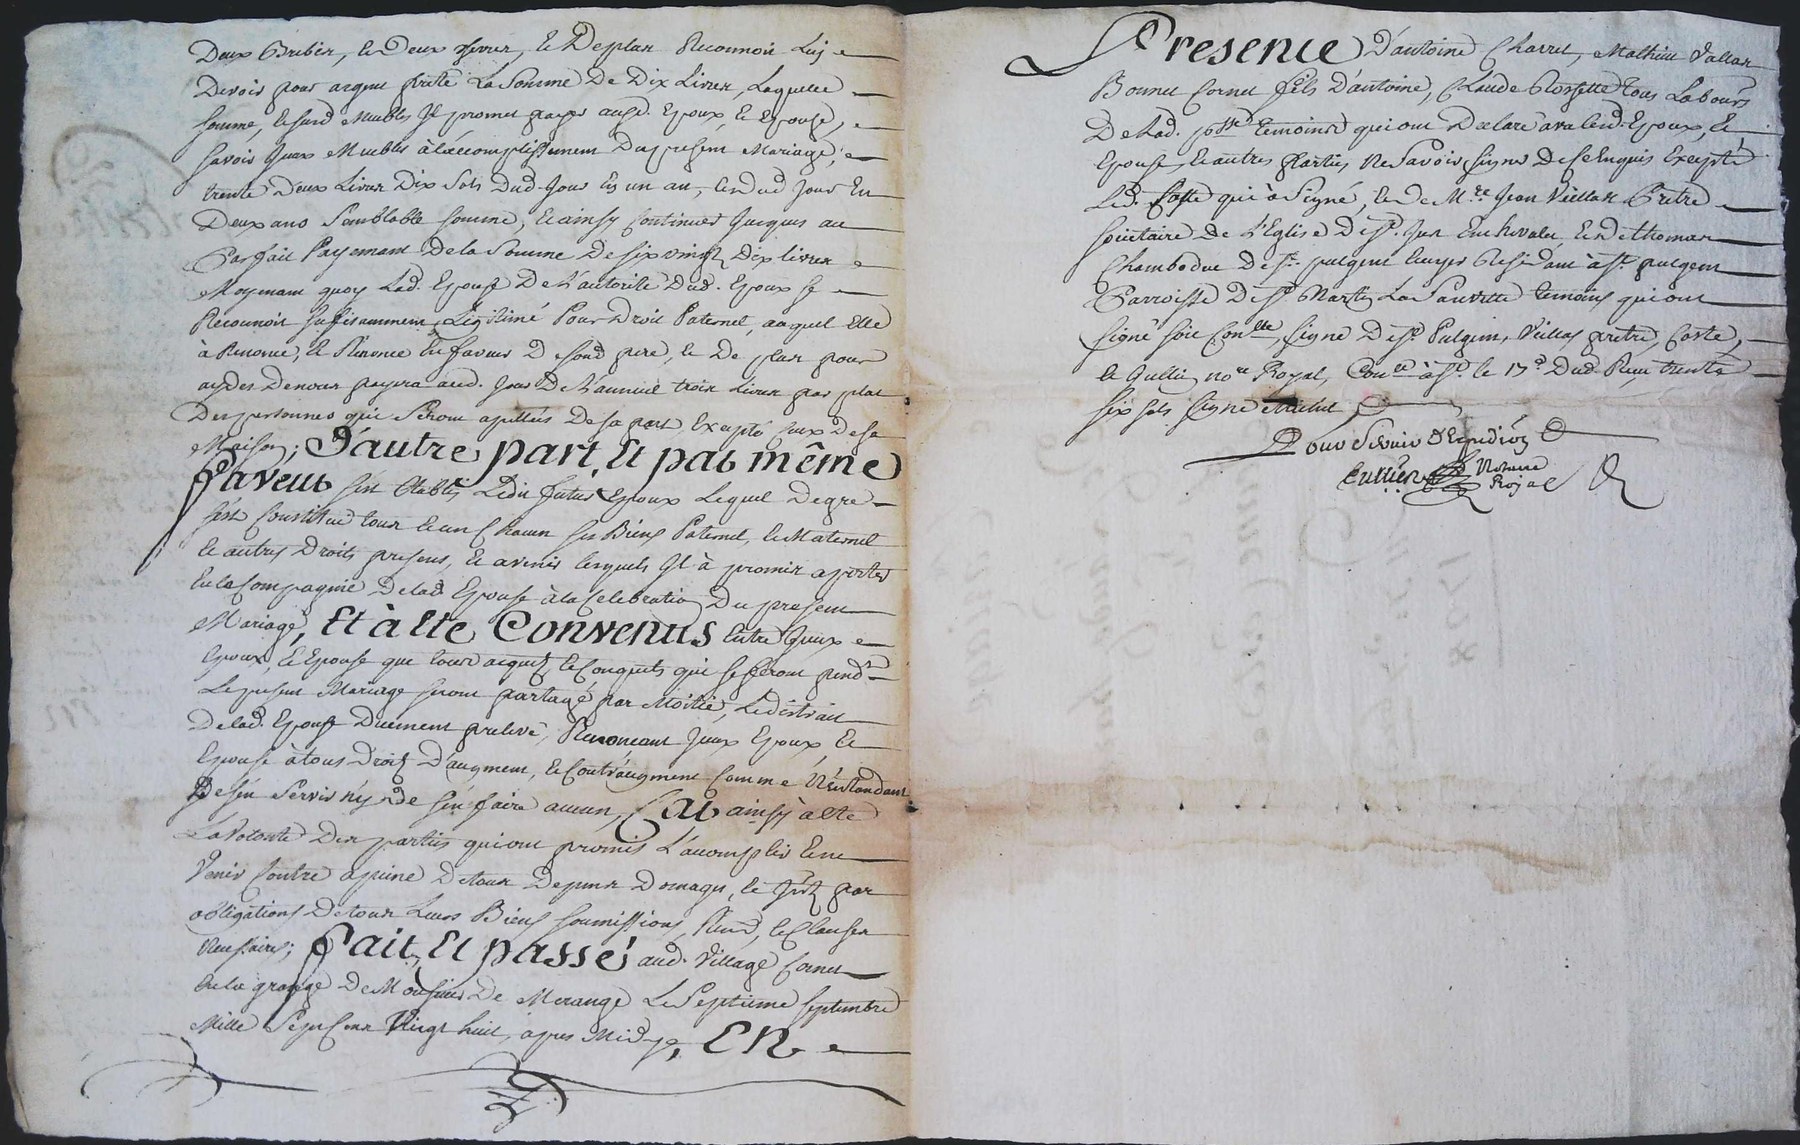 Deux Brebis, et deux chevres, et De plus Reconnoit Luy
Devoir pour argent preté La Somme De Dix Livres, Laquelle
somme, et susd Meubles Il promet payer ausd. Epoux, et Epouse,
savoir Iceux Meubles à laccomplissement Du present Mariage, et
trente Deux Livres Dix Sols Dud. Jour En un an, et dud Jour En
Deux ans Semblable somme, et ainsy Continuer Jusques au
Parfait Payement De la Somme De six vingt Dix livres
Moyenant quoy Lad. Epouse De L'autorité Dud. Epoux se
Reconnoit suffisamment Legitimé Pour Droit Paternel, auquel Elle
à Renoncé, et Renonce En faveur De sond pere, et De plus pour
ayder Denoces payera aud. Jour De L'année trois Livres par plat
Des personnes qui Seront apellées De sa part Excepté Ceux De sa
Maison; D'autre part, Et par même
Faveur s'est Etably Ledit futur Epoux Lequel De gré
s'est Constitué tous et un Chacun ses Biens Paternel, et Maternel
et autres Droits presens, et avenir lesquels Il à promis aporter
En la Compagnie De lad Epouse à la Celebration Du present
Mariage, Et à eté Convenus Entre Iceux
Epoux, et Epouse que tous acquets, et Conquets qui se feront pend.t
Le present Mariage seront partagé par Moitié, Le distrait
De lad. Epouse Duement prelevé, Renonçant Iceux Epoux, Et
Epouse à tous Droits D'augment, et Contr'augment Comme N'entendant
De s'en Servir ny De s'en faire aucun, Car ainsy à eté
La Volonté Des parties qui ont promis L'accomplir Et ne
Venir Contre a peine De tous Depens Domages, et Jnt par
obligations De tous Leurs Biens soumissions, Renon, et Clauses
Necessaires; Fait, Et passé aud. Village Cornet
En la grange De Monsieur De Merange Le Septieme septembre
Mille Sept Cent Vingt huit, apres Midy, En
Presence D'antoine Charret, Mathieu Vallas
Bonnet Cornet fils D'antoine, Claude Clossette tous Labours
De Lad. psse Temoins qui ont Declaré avec Lesd. Epoux, Et
Epouse, et autres Parties, Ne Savoir signer De ce Enquis Excepté
Led. Coste qui à Signé, et De M.re Jean Viellas Pretre
Societaire De L'Eglise De St. Jean En chevalet, et De thomas
Chambodue De St. pulgent Ecuyer Residant à St. pulgent
Parroisse De St. Martin La Sauveté temoins qui ont
signé soit Con.llé, Signé De St. Pulgent, Viellas pretre, Coste,
et Cullin no.re Royal, Con.lé à St. le 17.e Dud. Reçu trente
six sols Signé Michel
Pour Servir D'Expedition
Notaire
Royal